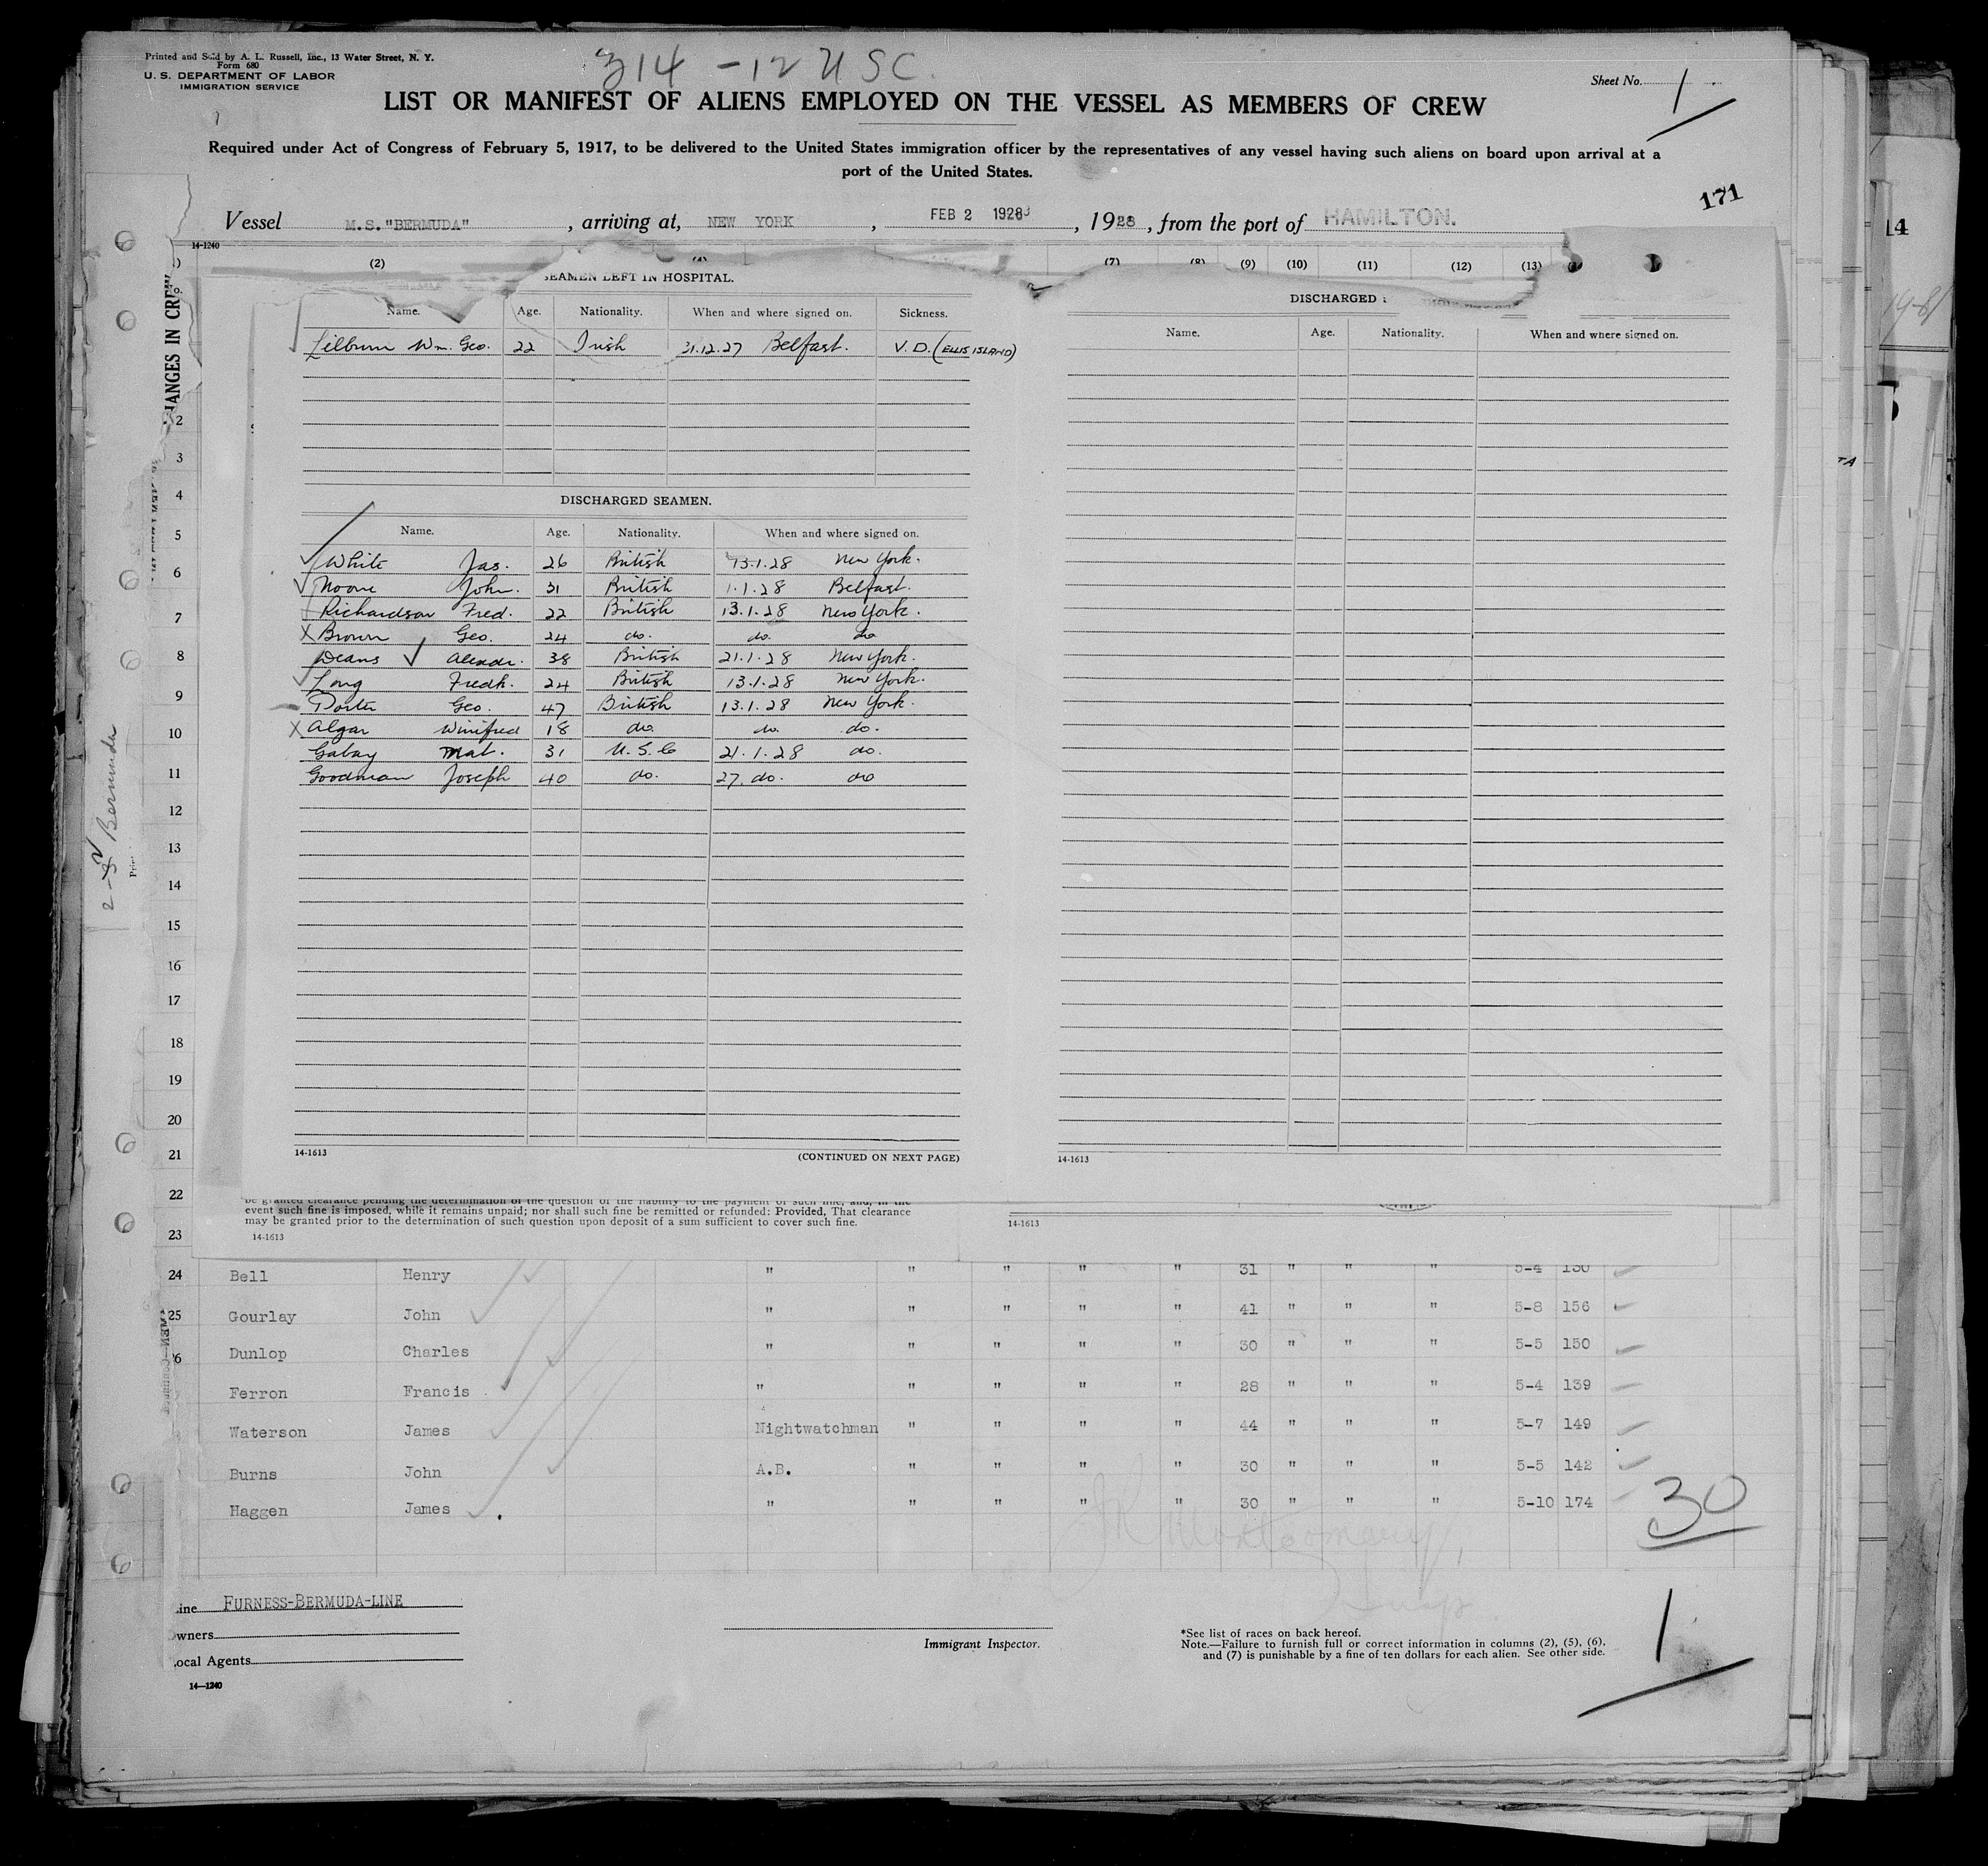 Printed and Sold by A. L. Russell, Inc., 13 Water Street, N. Y.
Form 680
U. S. DEPARTMENT OF LABOR
IMMIGRATION SERVICE
314 - 12 USC.
Sheet No. 1
LIST OR MANIFEST OF ALIENS EMPLOYED ON THE VESSEL AS MEMBERS OF CREW
Required under Act of Congress of February 5, 1917, to be delivered to the United States immigration officer by the representatives of any vessel having such aliens on board upon arrival at a
port of the United States.
171
Vessel M.S."BERMUDA", arriving at, NEW YORK, FEB 2 1928, 1928, from the port of HAMILTON.
14-1240
(2) (7) (8) (9) (10) (11) (12) (13)
SEAMEN LEFT IN HOSPITAL.
Name. Age. Nationality. When and where signed on. Sickness.
Lilburn Wm. Geo. 22 Irish 31.12.27 Belfast. V. D. (ELLIS ISLAND)
DISCHARGED SEAMEN.
Name. Age. Nationality. When and where signed on.
White Jas. 26 British 13.1.28 New York.
Moore John. 31 British 1.1.28 Belfast.
Richardson Fred. 22 British 13.1.28 New York.
X Brown Geo. 24 do. do. do
Deans Alexdr. 38 British 21.1.28 New York.
Long Fredk. 24 British 13.1.28 New York.
Porter Geo. 47 British 13.1.28 New York.
X Algar Winifred 18 do. do. do.
Gabay Mat. 31 U.S.C 21.1.28 do.
Goodman Joseph 40 do. 27. do. do
14-1613 (CONTINUED ON NEXT PAGE)
DISCHARGED
Name. Age. Nationality. When and where signed on.
14-1613
2
3
4
5
6
7
8
9
10
11
12
13
14
15
16
17
18
19
20
21
22
23
be granted clearance pending the determination of the question of the liability to the payment of such fine, and, in the
event such fine is imposed, while it remains unpaid; nor shall such fine be remitted or refunded: Provided, That clearance
may be granted prior to the determination of such question upon deposit of a sum sufficient to cover such fine.
14-1613
14-1613
24 Bell Henry " " " " " 31 " " " 5-4 130
25 Gourlay John " " " " " 41 " " " 5-8 156
Dunlop Charles " " " " " 30 " " " 5-5 150
Ferron Francis " " " " " 28 " " " 5-4 139
Waterson James Nightwatchman " " " " 44 " " " 5-7 149
Burns John A.B. " " " " 30 " " " 5-5 142
Haggen James " " " " " 30 " " " 5-10 174
30
Montgomery
FURNESS-BERMUDA-LINE
Immigrant Inspector.
*See list of races on back hereof.
Note.—Failure to furnish full or correct information in columns (2), (5), (6),
and (7) is punishable by a fine of ten dollars for each alien. See other side.
1
14—1240
Bermuda